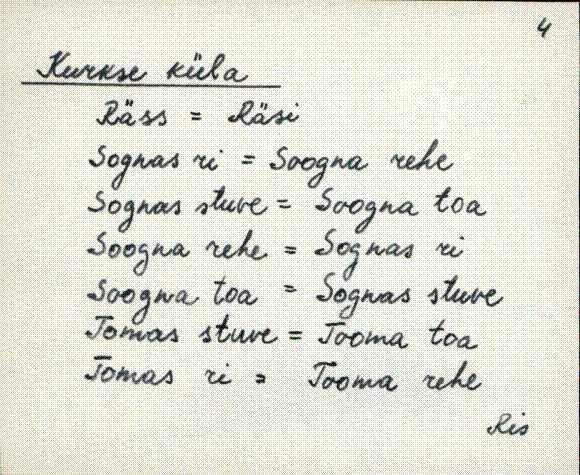 4
Kurkse küla
Räss = Räsi
Sognas ri = Soogna rehe
Sognas stuve = Soogna toa
Soogna rehe = Sognas ri
Soogna toa = Sognas stuve
Tomas stuve = Tooma toa
Tomas ri = Tooma rehe
Ris